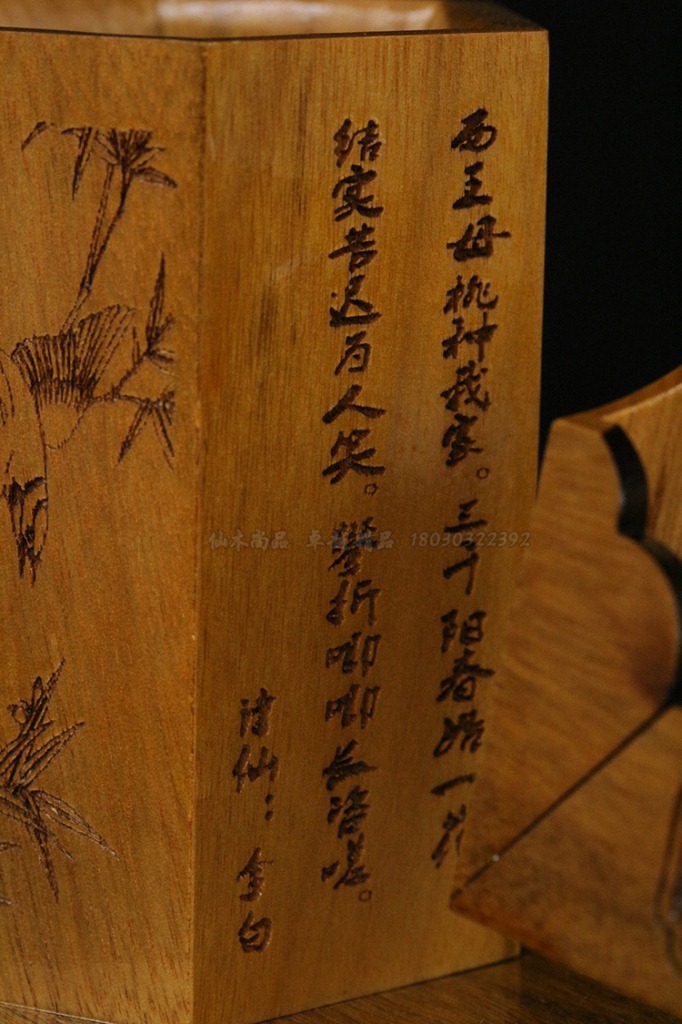 西王母桃种我家。三千阳春始一花
结实苦迟为人笑。攀折唧唧长咨嗟。
诗仙：李白
仙木尚品 卓越精品 18030322392